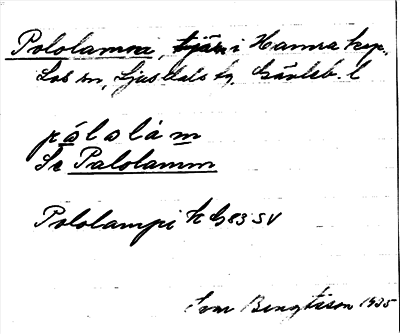 Pololamra, tjärn i Hamra kap.,
Los sn, Ljusdals tg. Gävleb. l
pålolám
Se Palolamm
Pololampi k G 83 SV
Ivar Bengtsson 1935